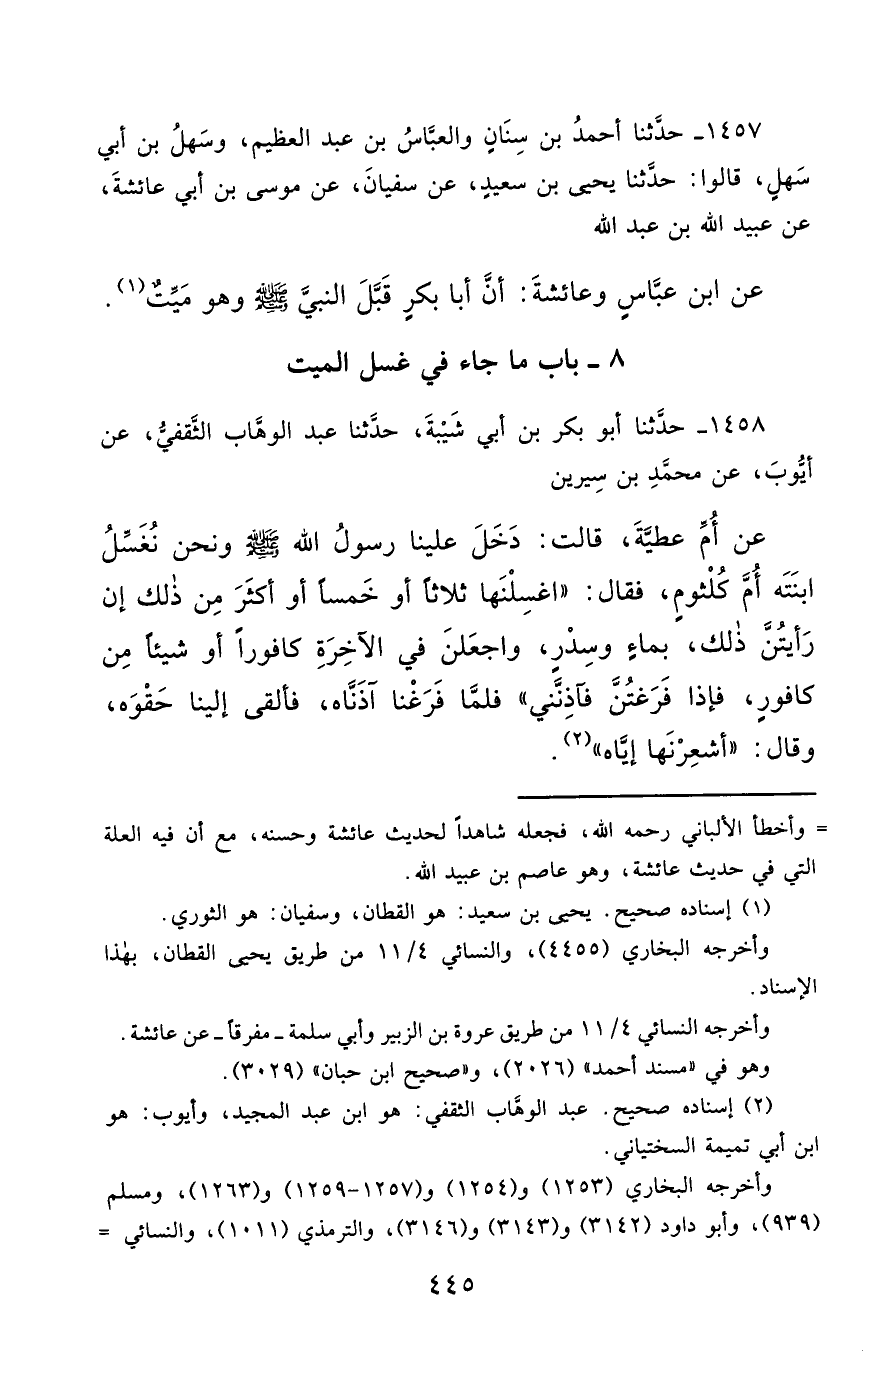 ١٤٥٧ـ حدَّثنا أحمدُ بن سِنَانٍ والعبَّاسُ بن عبد العظيم، وسَهلُ بن أبي
سَهلٍ، قالوا: حدَّثنا يحيى بن سعيدٍ، عن سفيانَ، عن موسى بن أبي عائشةَ،
عن عبيد الله بن عبد الله
عن ابن عبَّاسٍ وعائشةَ: أنَّ أبا بكرٍ قَبَّلَ النبيَّ ﷺ وهو مَيِّتٌ(١).
٨ ـ باب ما جاء في غسل الميت
١٤٥٨ـ حدَّثنا أبو بكر بن أبي شَيْبةَ، حدَّثنا عبد الوهَّاب الثَّقفيُّ، عن
أيُّوبَ، عن محمَّدِ بن سِيرين
عن أُمِّ عطيَّةَ، قالت: دَخَلَ علينا رسولُ الله ﷺ ونحن نُغَسِّلُ
ابنَتَه أُمَّ كُلْثومٍ، فقال: «اغسِلْنَها ثلاثاً أو خَمساً أو أكثَرَ مِن ذٰلك إن
رَأيتُنَّ ذٰلك، بماءٍ وسِدْرٍ، واجعَلنَ في الآخِرَةِ كافوراً أو شيئاً مِن
كافورٍ، فإذا فَرَغتُنَّ فآذِنَّني» فلمَّا فَرَغْنا آذَنَّاه، فألقى إلينا حَقْوَه،
وقال: «أشعِرْنَها إيَّاه»(٢).
= وأخطأ الألباني رحمه الله، فجعله شاهداً لحديث عائشة وحسنه، مع أن فيه العلة
التي في حديث عائشة، وهو عاصم بن عبيد الله.
(١) إسناده صحيح. يحيى بن سعيد: هو القطان، وسفيان: هو الثوري.
وأخرجه البخاري (٤٤٥٥)، والنسائي ١١/٤ من طريق يحيى القطان، بهٰذا
الإسناد.
وأخرجه النسائي ١١/٤ من طريق عروة بن الزبير وأبي سلمة ـ مفرقاً ـ عن عائشة.
وهو في «مسند أحمد» (٢٠٢٦)، و«صحيح ابن حبان» (٣٠٢٩).
(٢) إسناده صحيح. عبد الوهَّاب الثقفي: هو ابن عبد المجيد، وأيوب: هو
ابن أبي تميمة السختياني.
وأخرجه البخاري (١٢٥٣) و(١٢٥٤) و(١٢٥٧-١٢٥٩) و(١٢٦٣)، ومسلم
(٩٣٩)، وأبو داود (٣١٤٢) و(٣١٤٣) و(٣١٤٦)، والترمذي (١٠١١)، والنسائي =
٤٤٥